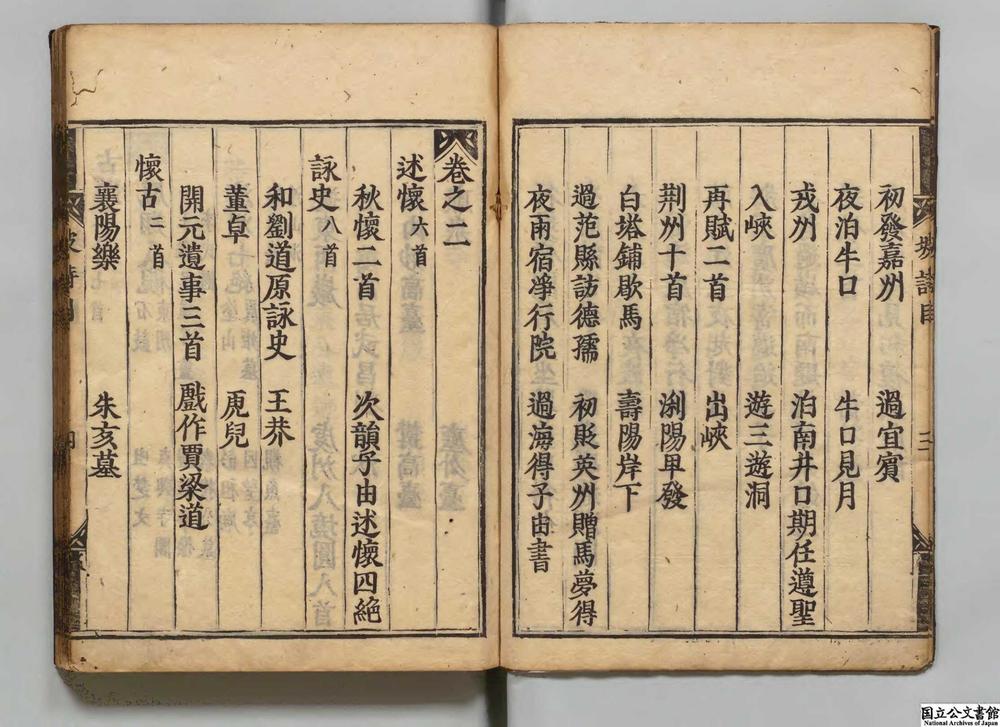 初發嘉州 過宜賓
夜泊牛口 牛口見月
戎州 泊南井口期任遵聖
入峽 遊三遊洞
再賦二首 出峽
荆州十首 浰陽早發
白塔鋪歇馬 壽陽岸下
過范縣訪德孺 初貶英州贈馬夢得
夜雨宿淨行院 過海得子由書
卷之二
述懷六首
秋懷二首 次韻子由述懷四絕
詠史八首
和劉道原詠史 王莽
董卓 虎兒
開元遺事三首 戲作賈梁道
懷古二首
襄陽樂 朱亥墓
国立公文書館
National Archives of Japan